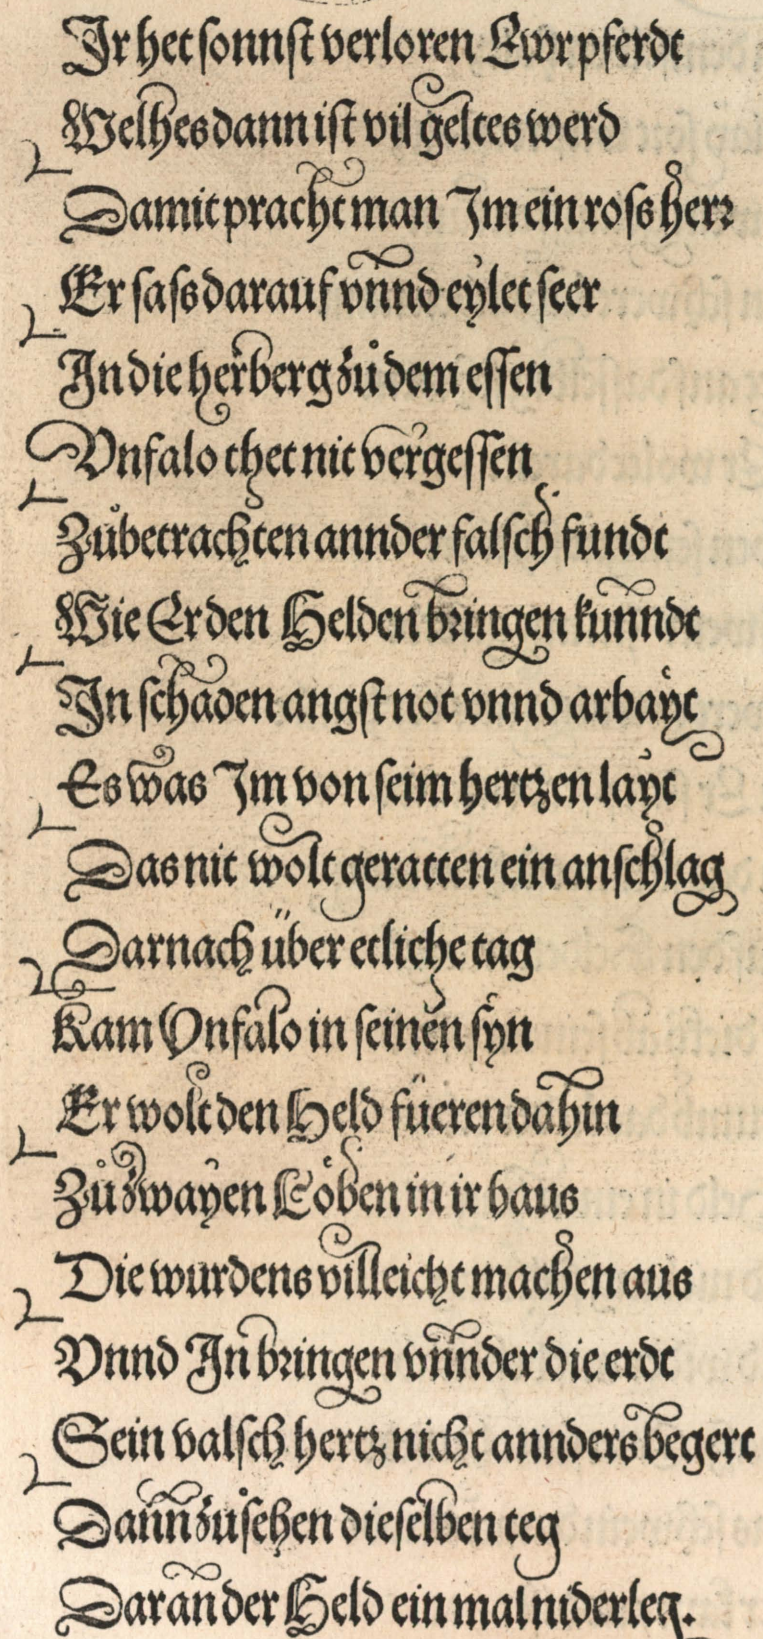 Ir het sonnst verloren Ewr pferdt
Welhes dann ist vil geltes werd
Damit pracht man Im ein ross herr
Er sass darauf vnnd eylet seer
In die herberg zů dem essen
Vnfalo thet nit vergessen
Zůbetrachten annder falsch fundt
Wie Er den Helden bringen kunndt
In schaden angst not vnnd arbayt
Es was Im von seim hertzen layt
Das nit wolt geratten ein anschlag
Darnach über etliche tag
Kam Vnfalo in seinen syn
Er wolt den Held füeren dahin
Zů zwayen Löben in ir haus
Die wurdens villeicht machen aus
Vnnd In bringen vnnder die erdt
Sein valsch hertz nicht annders begert
Dann zusehen dieselben teg
Daran der Held ein mal niderleg.